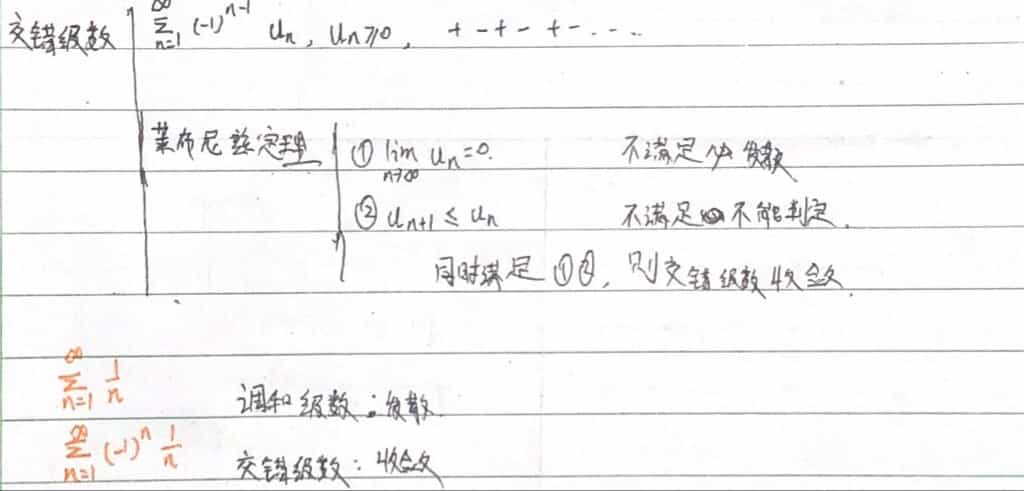 交错级数 ∑_{n=1}^{∞} (-1)^{n-1} u_n, u_n≥0, + - + - + - ....
莱布尼兹定理 ① lim_{n→∞} u_n=0. 不满足 发散
② u_{n+1} ≤ u_n 不满足 不能判定.
同时满足①②, 则交错级数收敛.
∑_{n=1}^{∞} 1/n 调和级数: 发散.
∑_{n=1}^{∞} (-1)^n 1/n 交错级数: 收敛